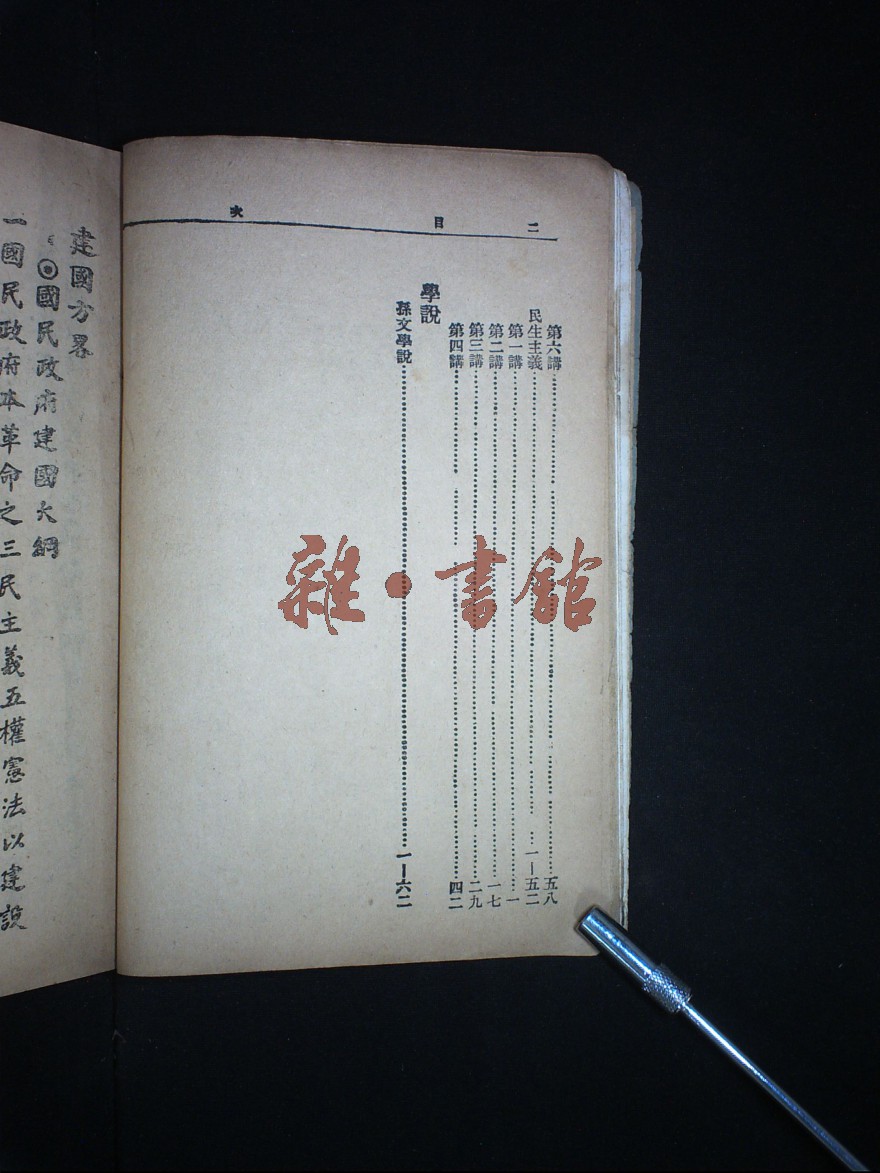 二 目 次
第六講……五八
民生主義……一—五二
第一講……一
第二講……一七
第三講……二九
第四講……四二
學說
孫文學說……一—六二
建國方畧
◎國民政府建國大綱
一國民政府本革命之三民主義五權憲法以建設
雜·書館